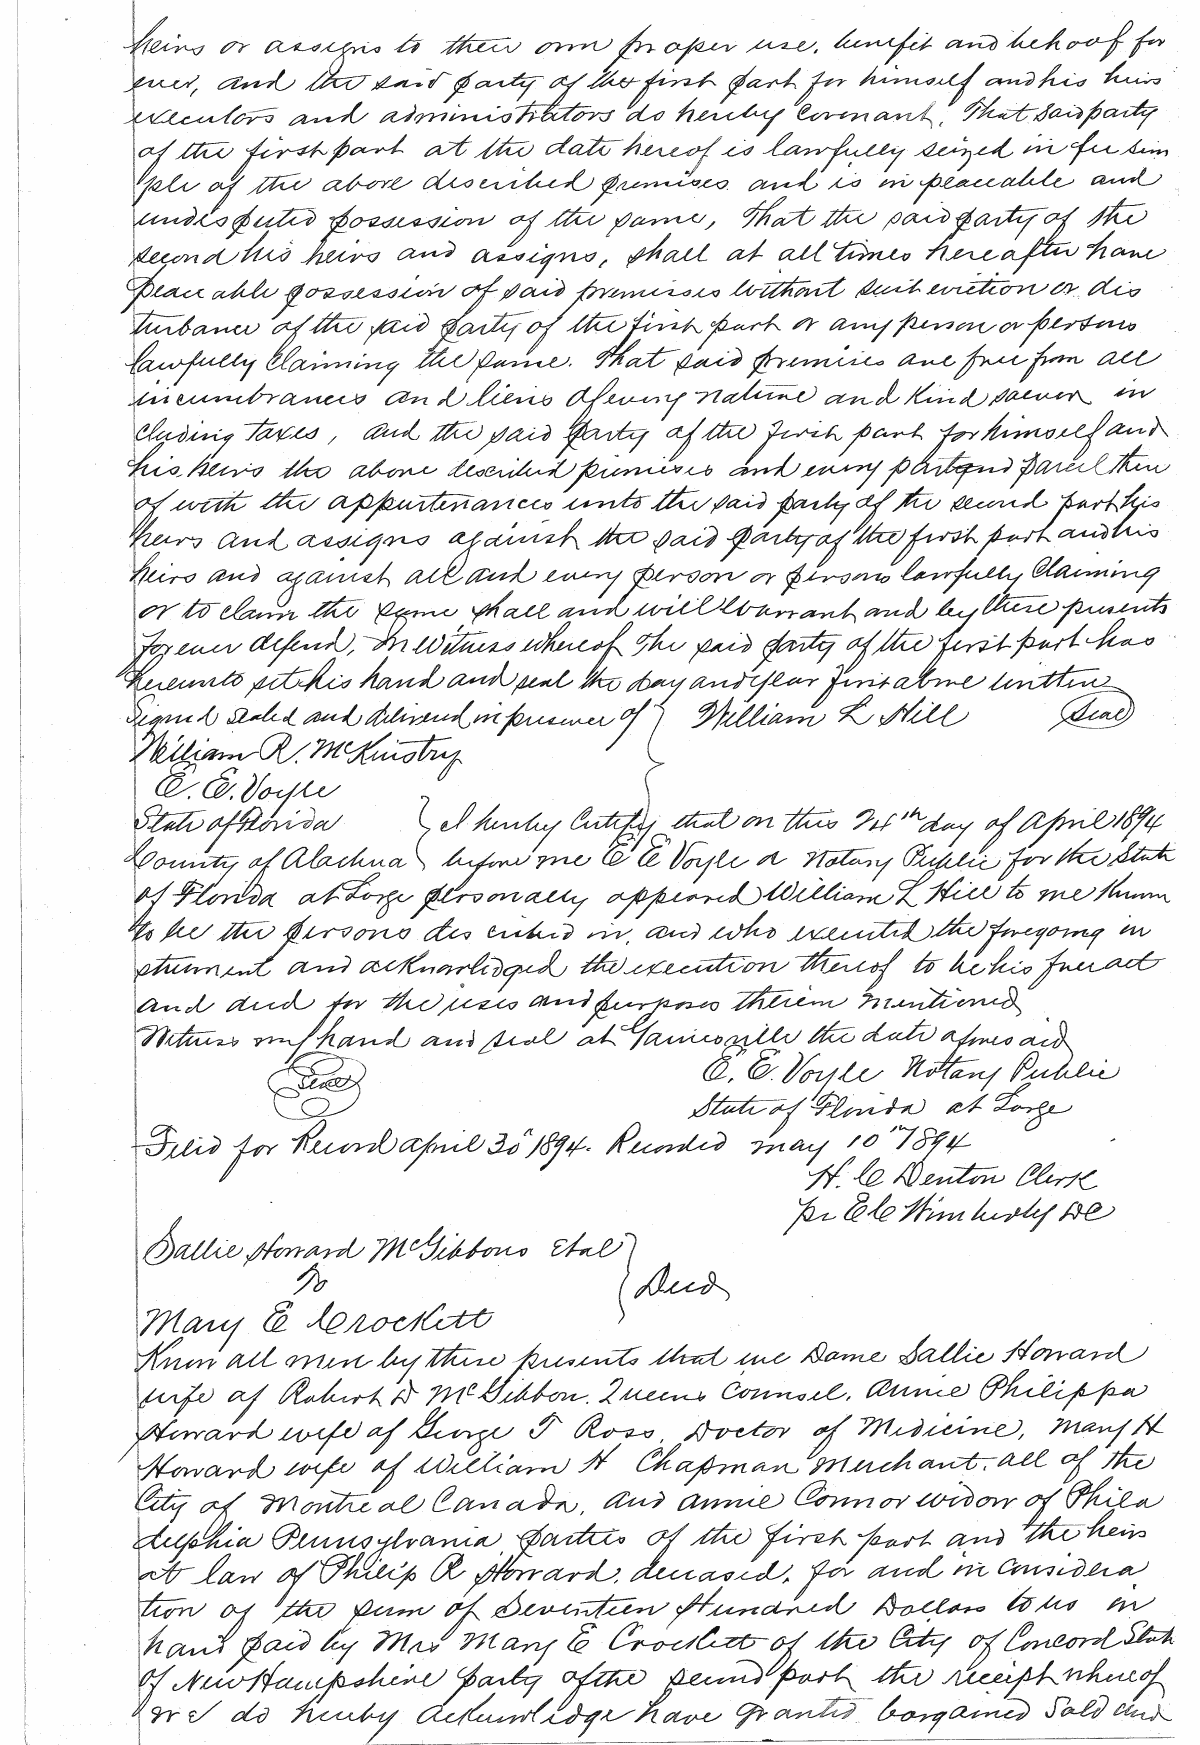 heirs or assigns to their own proper use, benefit and behoof for
ever, and the said party of the first part for himself and his heirs
executors and administrators do hereby Covenant, That said party
of the first part at the date hereof is lawfully seized in fee sim
ple of the above described premises and is in peaceable and
undisputed possession of the same, That the said party of the
second his heirs and assigns, shall at all times hereafter have
peaceable possession of said premises without suit eviction or dis
turbance of the said party of the first part or any person or persons
lawfully Claiming the same. That said premises are free from all
incumbrances and liens of every nature and kind soever in
cluding taxes, and the said party of the first part for himself and
his heirs the above described premises and every part and parcel there
of with the appurtenances unto the said party of the second part his
heirs and assigns against the said party of the first part and his
heirs and against all and every person or persons lawfully Claiming
or to claim the same shall and will warrant and by these presents
forever defend, In Witness whereof the said party of the first part has
hereunto set his hand and seal the day and year first above written
Signed sealed and delivered in presence of } William L Hill (Seal)
William R. McKinstry
E. E. Voyle
State of Florida } I hereby Certify that on this 24th day of April 1894
County of Alachua } before me E E Voyle a Notary Public for the State
of Florida at Large personally appeared William L Hill to me known
to be the persons described in, and who executed the foregoing in
strument and acknowledged the execution thereof to be his free act
and deed for the uses and purposes therein mentioned
Witness my hand and seal at Gainesville the date aforesaid
(Seal) E. E. Voyle Notary Public
State of Florida at Large
Filed for Record April 30 1894. Recorded May 10th 1894
H. C Denton Clerk
pr E C Wimberly DC
Sallie Howard McGibbons Etal }
To } Deed
Mary E Crockett
Know all men by these presents that we Dame Sallie Howard
wife of Robert D McGibbon. Queens Counsel, Annie Philippa
Howard wife of George T Ross, Doctor of Medicine, Mary H
Howard wife of William H Chapman Merchant, all of the
City of Montreal Canada, and Annie Connor widow of Phila
delphia Pennsylvania parties of the first part and the heirs
at law of Philip R Howard, deceased, for and in considera
tion of the sum of Seventeen Hundred Dollars to us in
hand paid by Mrs Mary E Crockett of the City of Concord State
of New Hampshire party of the second part the receipt whereof
we do hereby acknowledge have granted bargained Sold and